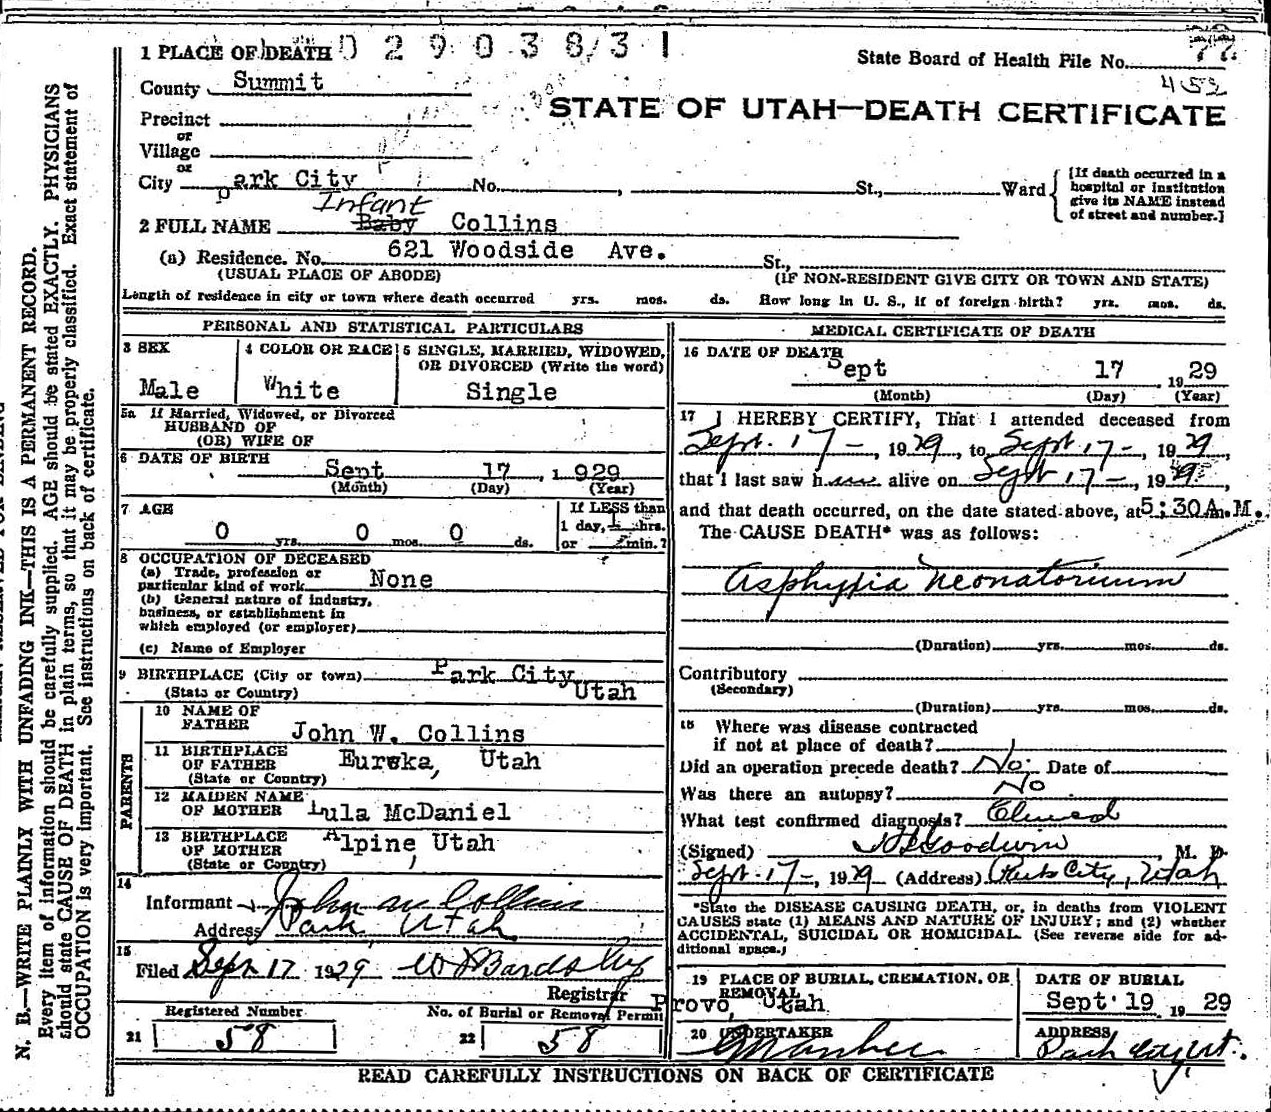 1 PLACE OF DEATH 0 2 9 0 3 8/3 1
State Board of Health File No. 77
453
County Summit
STATE OF UTAH—DEATH CERTIFICATE
Precinct
or
Village
or
City Park City No. , St., Ward
[If death occurred in a hospital or institution give its NAME instead of street and number.]
Infant
2 FULL NAME Baby Collins
(a) Residence. No. 621 Woodside Ave. St.,
(USUAL PLACE OF ABODE) (IF NON-RESIDENT GIVE CITY OR TOWN AND STATE)
Length of residence in city or town where death occurred yrs. mos. ds. How long in U. S., if of foreign birth? yrs. mos. ds.
PERSONAL AND STATISTICAL PARTICULARS
3 SEX
Male
4 COLOR OR RACE
White
5 SINGLE, MARRIED, WIDOWED, OR DIVORCED (Write the word)
Single
5a If Married, Widowed, or Divorced
HUSBAND OF
(OR) WIFE OF
6 DATE OF BIRTH
Sept 17, 1929
(Month) (Day) (Year)
7 AGE
0 yrs. 0 mos. 0 ds.
If LESS than
1 day, hrs.
or min.?
8 OCCUPATION OF DECEASED
(a) Trade, profession or
particular kind of work None
(b) General nature of industry,
business, or establishment in
which employed (or employer)
(c) Name of Employer
9 BIRTHPLACE (City or town) Park City
(State or Country) Utah
PARENTS
10 NAME OF
FATHER John W. Collins
11 BIRTHPLACE
OF FATHER Eureka, Utah
(State or Country)
12 MAIDEN NAME
OF MOTHER Lula McDaniel
13 BIRTHPLACE
OF MOTHER Alpine Utah
(State or Country)
14
Informant John W Collins
Address Park, Utah
15
Filed Sept 17 1929
Registrar
Registered Number
21 58
No. of Burial or Removal Permit
22 58
MEDICAL CERTIFICATE OF DEATH
16 DATE OF DEATH
Sept 17 , 1929
(Month) (Day) (Year)
17 I HEREBY CERTIFY, That I attended deceased from
Sept. 17 -, 1929, to Sept 17 -, 1929,
that I last saw h alive on Sept 17 -, 1929,
and that death occurred, on the date stated above, at 5:30 A.M.
The CAUSE DEATH* was as follows:
Asphyxia Neonatorium
(Duration) yrs. mos. ds.
Contributory
(Secondary)
(Duration) yrs. mos. ds.
18 Where was disease contracted
if not at place of death?
Did an operation precede death? No. Date of
Was there an autopsy? No
What test confirmed diagnosis? Clinical
(Signed) Goodwin M. D.
Sept. 17 -, 1929 (Address) Park City, Utah
*State the DISEASE CAUSING DEATH, or, in deaths from VIOLENT
CAUSES state (1) MEANS AND NATURE OF INJURY; and (2) whether
ACCIDENTAL, SUICIDAL OR HOMICIDAL. (See reverse side for ad-
ditional space.)
19 PLACE OF BURIAL, CREMATION, OR
REMOVAL
Provo, Utah
DATE OF BURIAL
Sept 19 , 1929
20 UNDERTAKER
ADDRESS
Park City Ut.
READ CAREFULLY INSTRUCTIONS ON BACK OF CERTIFICATE
N. B.—WRITE PLAINLY WITH UNFADING INK—THIS IS A PERMANENT RECORD.
Every item of information should be carefully supplied. AGE should be stated EXACTLY. PHYSICIANS
should state CAUSE OF DEATH in plain terms, so that it may be properly classified. Exact statement of
OCCUPATION is very important. See instructions on back of certificate.